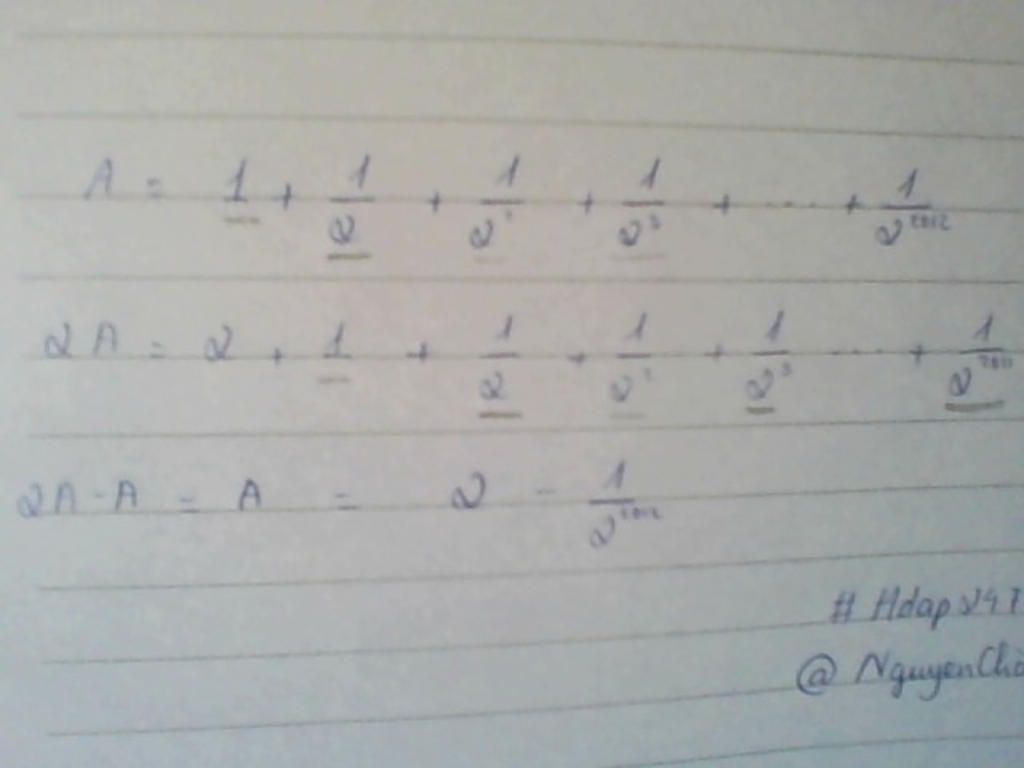 A = 1 + 1/2 + 1/2² + 1/2³ + .... + 1/2²⁰¹²
2A = 2 + 1 + 1/2 + 1/2² + 1/2³ .... + 1/2²⁰¹¹
2A - A = A = 2 - 1/2²⁰¹²
# Hdap 247
@ NguyenChò